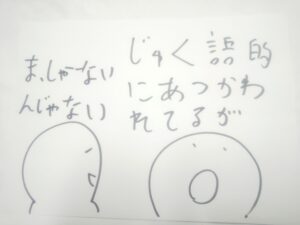 じゅく語的
にあつかわ
れてるが
ま、しゃーない
んじゃない